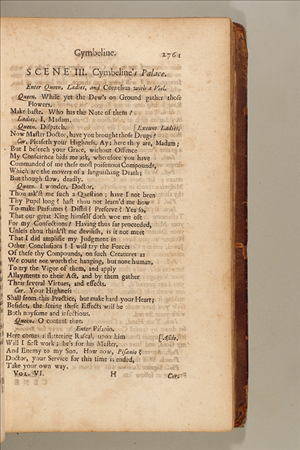 Cymbeline. 2761
SCENE III. Cymbeline's Palace.
Enter Queen, Ladies, and Cornelius with a Viol.
Queen. While yet the Dew's on Ground gather those
Flowers.
Make haste. Who has the Note of them?
Ladies. I, Madam.
Queen. Dispatch. Exeunt Ladies.
Now Master Doctor, have you brought those Drugs?
Cor. Pleaseth your Highness, Ay; here they are, Madam;
But I beseech your Grace, without Offence
My Conscience bids me ask, wherefore you have
Commanded of me these most poisonous Compounds,
Which are the movers of a languishing Death;
But though slow, deadly.
Queen. I wonder, Doctor,
Thou ask'st me such a Question; have I not been
Thy Pupil long? hast thou not learn'd me how
To make Perfumes? Distil? Preserve? Yea so,
That our great King himself doth woe me oft
For my Confections? Having thus far proceeded,
Unless thou think'st me devilish, is it not meet
That I did amplifie my Judgment in
Other Conclusions? I will try the Forces
Of these thy Compounds, on such Creatures as
We count not worth the hanging, but none human,
To try the Vigor of them, and apply
Allayments to their Act, and by them gather
Their several Virtues, and effects.
Cor. Your Highness
Shall from this Practice, but make hard your Heart;
Besides, the seeing these Effects will be
Both noysome and infectious.
Queen. O content thee.
Enter Pisanio.
Here comes a flattering Rascal, upon him [Aside.
Will I first work; he's for his Master,
And Enemy to my Son. How now, Pisanio?
Doctor, your Service for this time is ended,
Take your own way.
VOL. VI. H Cor.